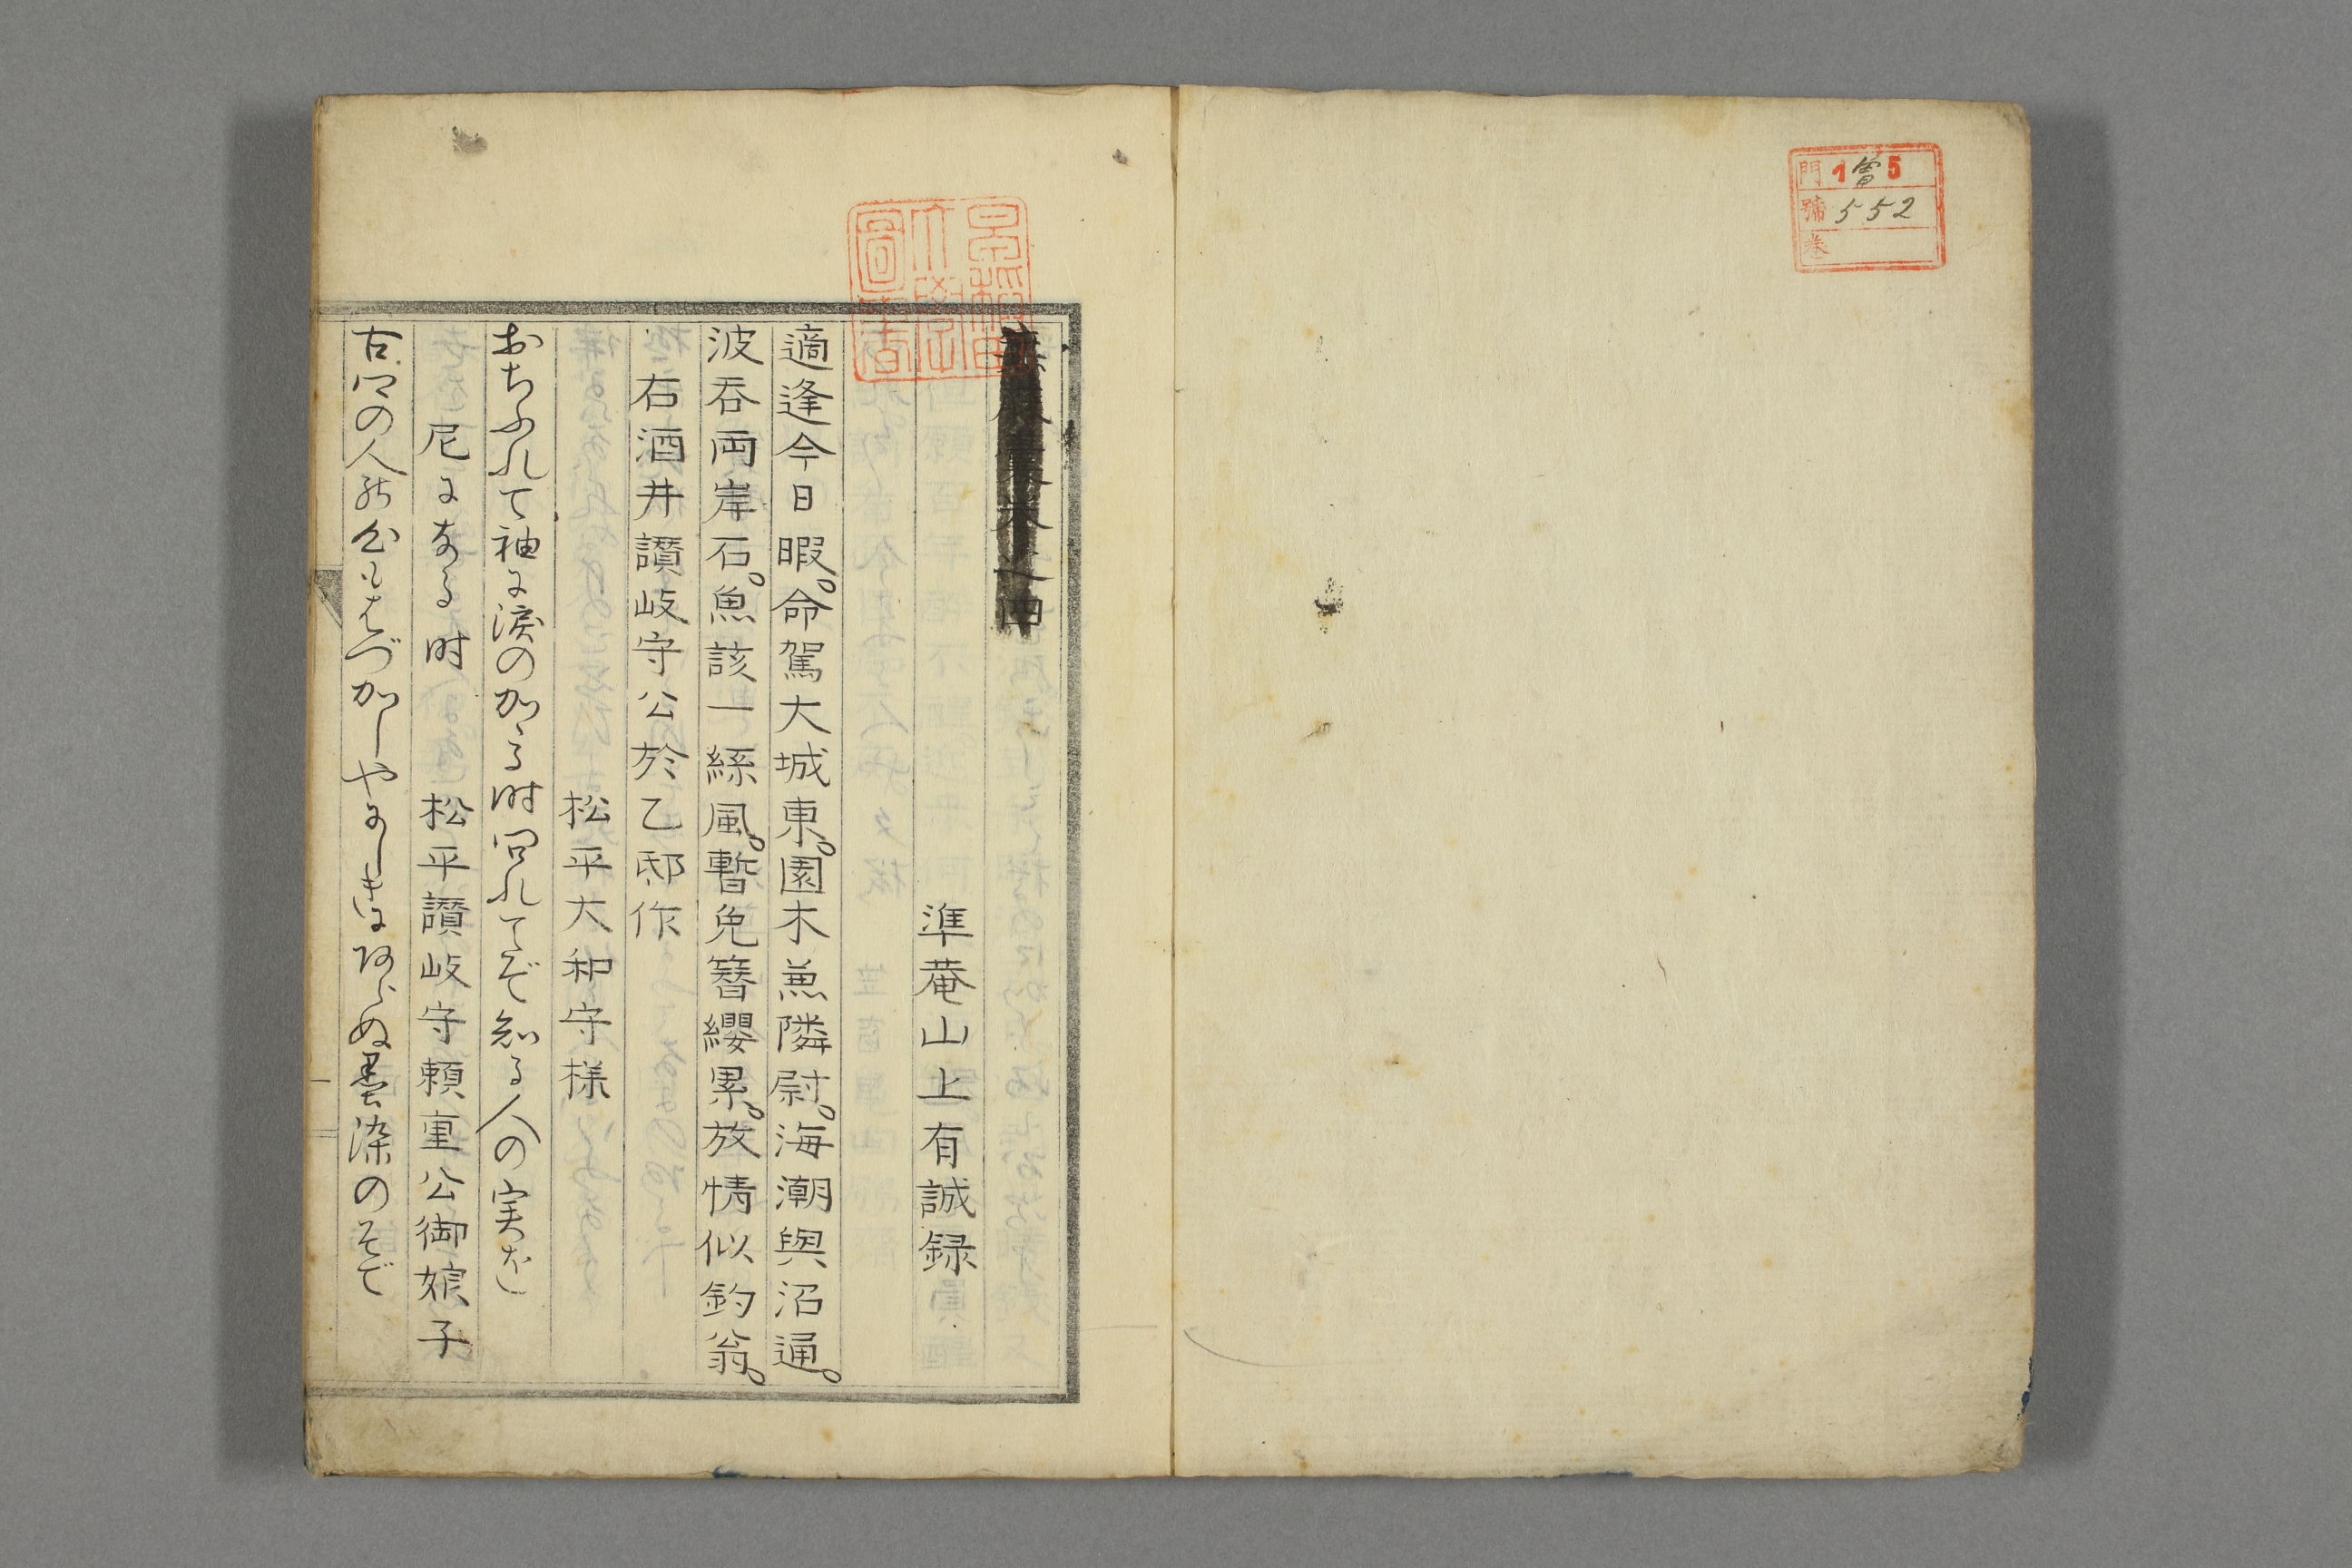 門 1 曽 5
號 552
卷
早稲田
大學
圖書
卷之四
準菴山上有誠録
適逢今日暇。命駕大城東。園木兼隣尉。海潮與沼通。
波呑両岸石。魚該一絲風。暫免簪纓累。放情似釣翁。
右酒井讃岐守公於乙邸作
松平大和守様
おちふれて袖に涙のかゝる時問れてぞ知る人の実を
尼になる時 松平讃岐守頼重公御娘子
古への人の心もはづかしや
ぬ墨染のそで